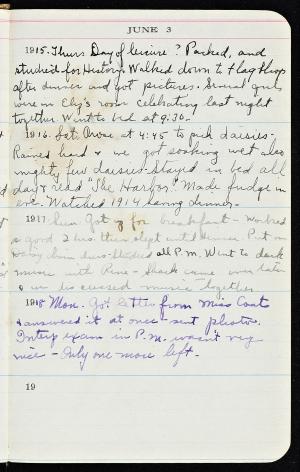 JUNE 3
1915. Thurs Day of leisure? Packed, and
studied for History. Walked down to Flagshop
after dinner and got pictures. Several girls
were in Chj's room celebrating last night
together Went to bed at 9:30.
1916. Sat. Arose at 4:45 to pick daisies-
Rained hard & we got soaking wet also
mighty few daisies. Stayed in bed all
day & read "The Harbor." Made fudge in
eve. Watched 1914 having dinner.
1917. Sun Got up for breakfast - worked
a good 2 hrs. then slept until dinner Put on
dress all P.M. Went to dark
music with Rene - came over later
& we discussed music together
1918 Mon. Got letter from Miss Coat
& answered it at once - sent photos.
Interp exam in P.M. wasn't very
nice - Only one more left.
19